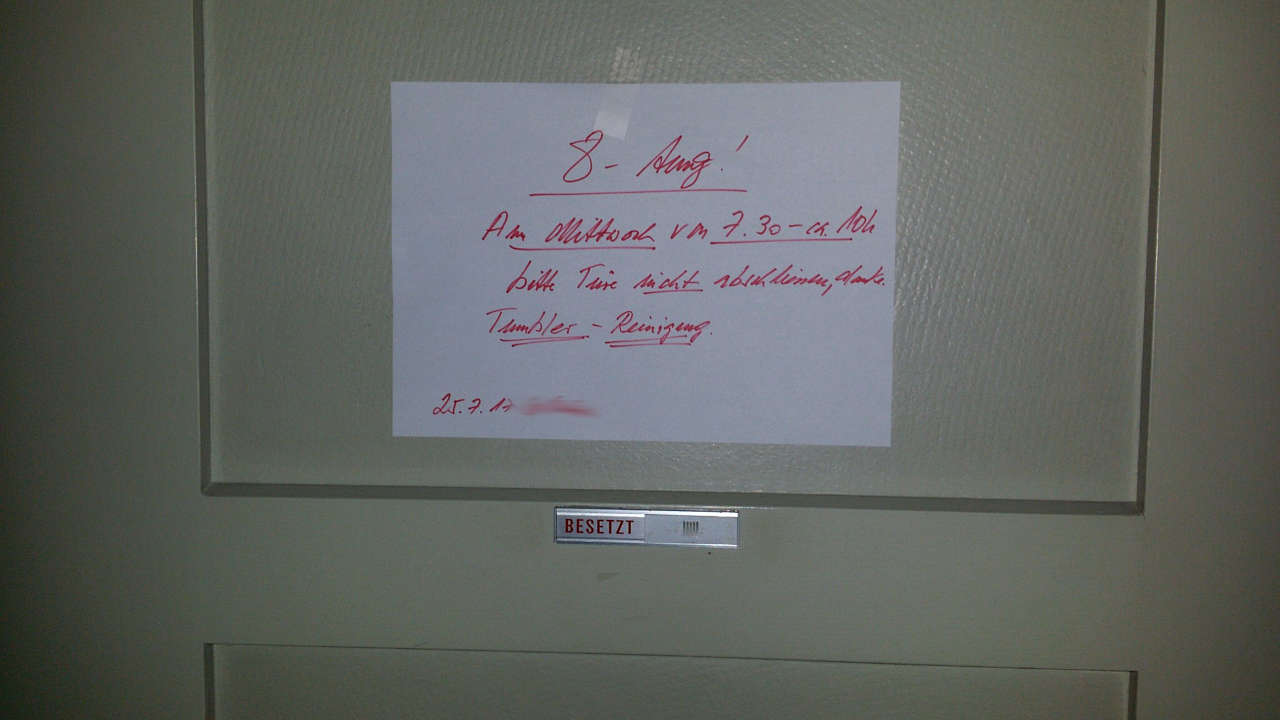 8-tung!
Am Mittwoch von 7.30 - ca. 10h
bitte Türe nicht abschliessen, danke.
Tumbler - Reinigung.
25.7.17
BESETZT